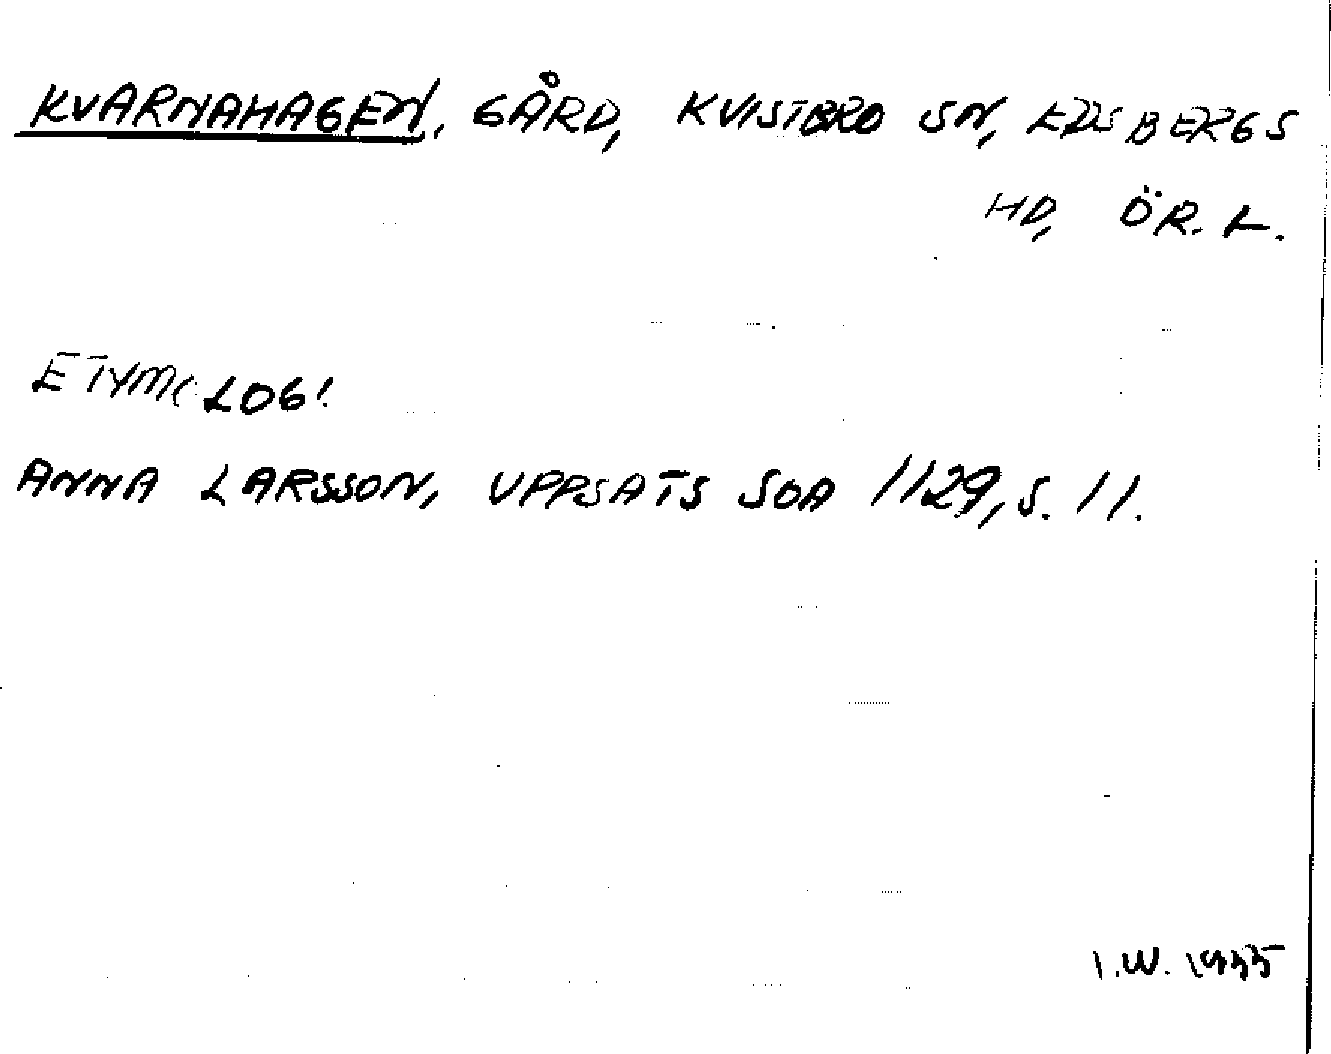 KVARNAHAGEN, GÅRD, KVISTBRO SN, EDSBERGS
HD, ÖR. L.
ETYMOLOGI.
ANNA LARSSON, UPPSATS SOA 1129, S. 11.
I.W. 1955